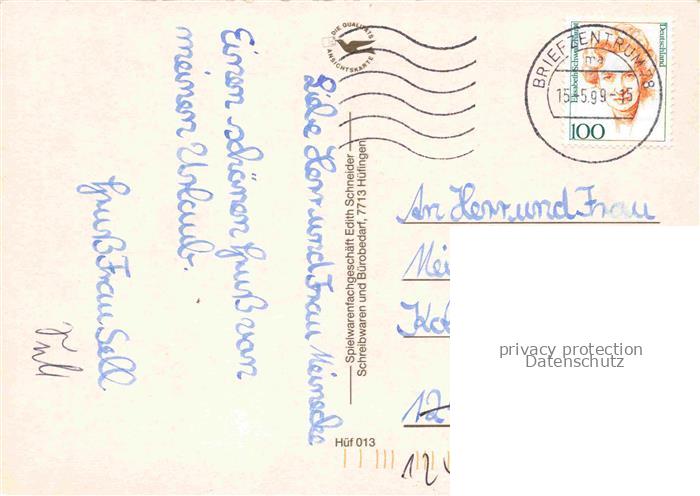 Liebe Herr und Frau Meinecke
Einen schönen Gruß von
meinen Urlaub.
Gruß Frau Sell
DIE QUALITÄTS
ANSICHTSKARTE
Spielwarenfachgeschäft Edith Schneider
Schreibwaren und Bürobedarf, 7713 Hüfingen
Hüf 013
Deutschland
100
BRIEFZENTRUM 78
15.-5.99-15
An Herr und Frau
Mei
12
124
privacy protection
Datenschutz